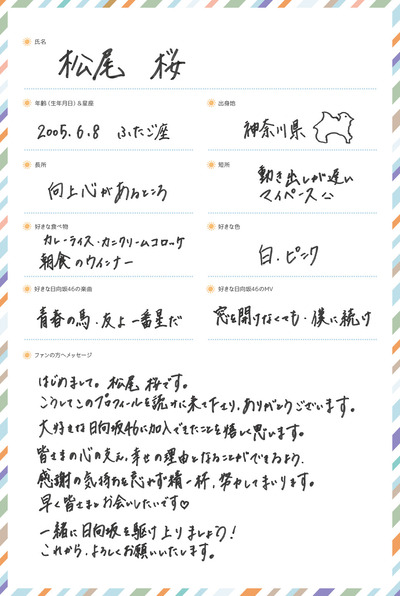 氏名
松尾 桜
年齢(生年月日)&星座
2005.6.8 ふたご座
出身地
神奈川県
長所
向上心があるところ
短所
動き出しが遅い
マイペース
好きな食べ物
カレーライス・カニクリームコロッケ
朝食のウインナー
好きな色
白・ピンク
好きな日向坂46の楽曲
青春の馬・友よ一番星だ
好きな日向坂46のMV
窓を開けなくても・僕に続け
ファンの方へメッセージ
はじめまして。松尾 桜です。
こうしてこのプロフィールを読みに来て下さり、ありがとうございます。
大好きな日向坂46に加入できたことを嬉しく思います。
皆さまの心の支え、幸せの理由となることができるよう、
感謝の気持ちを忘れず精一杯、努力してまいります。
早く皆さまとお会いしたいです♡
一緒に日向坂を駆け上りましょう!
これから、よろしくお願いいたします。